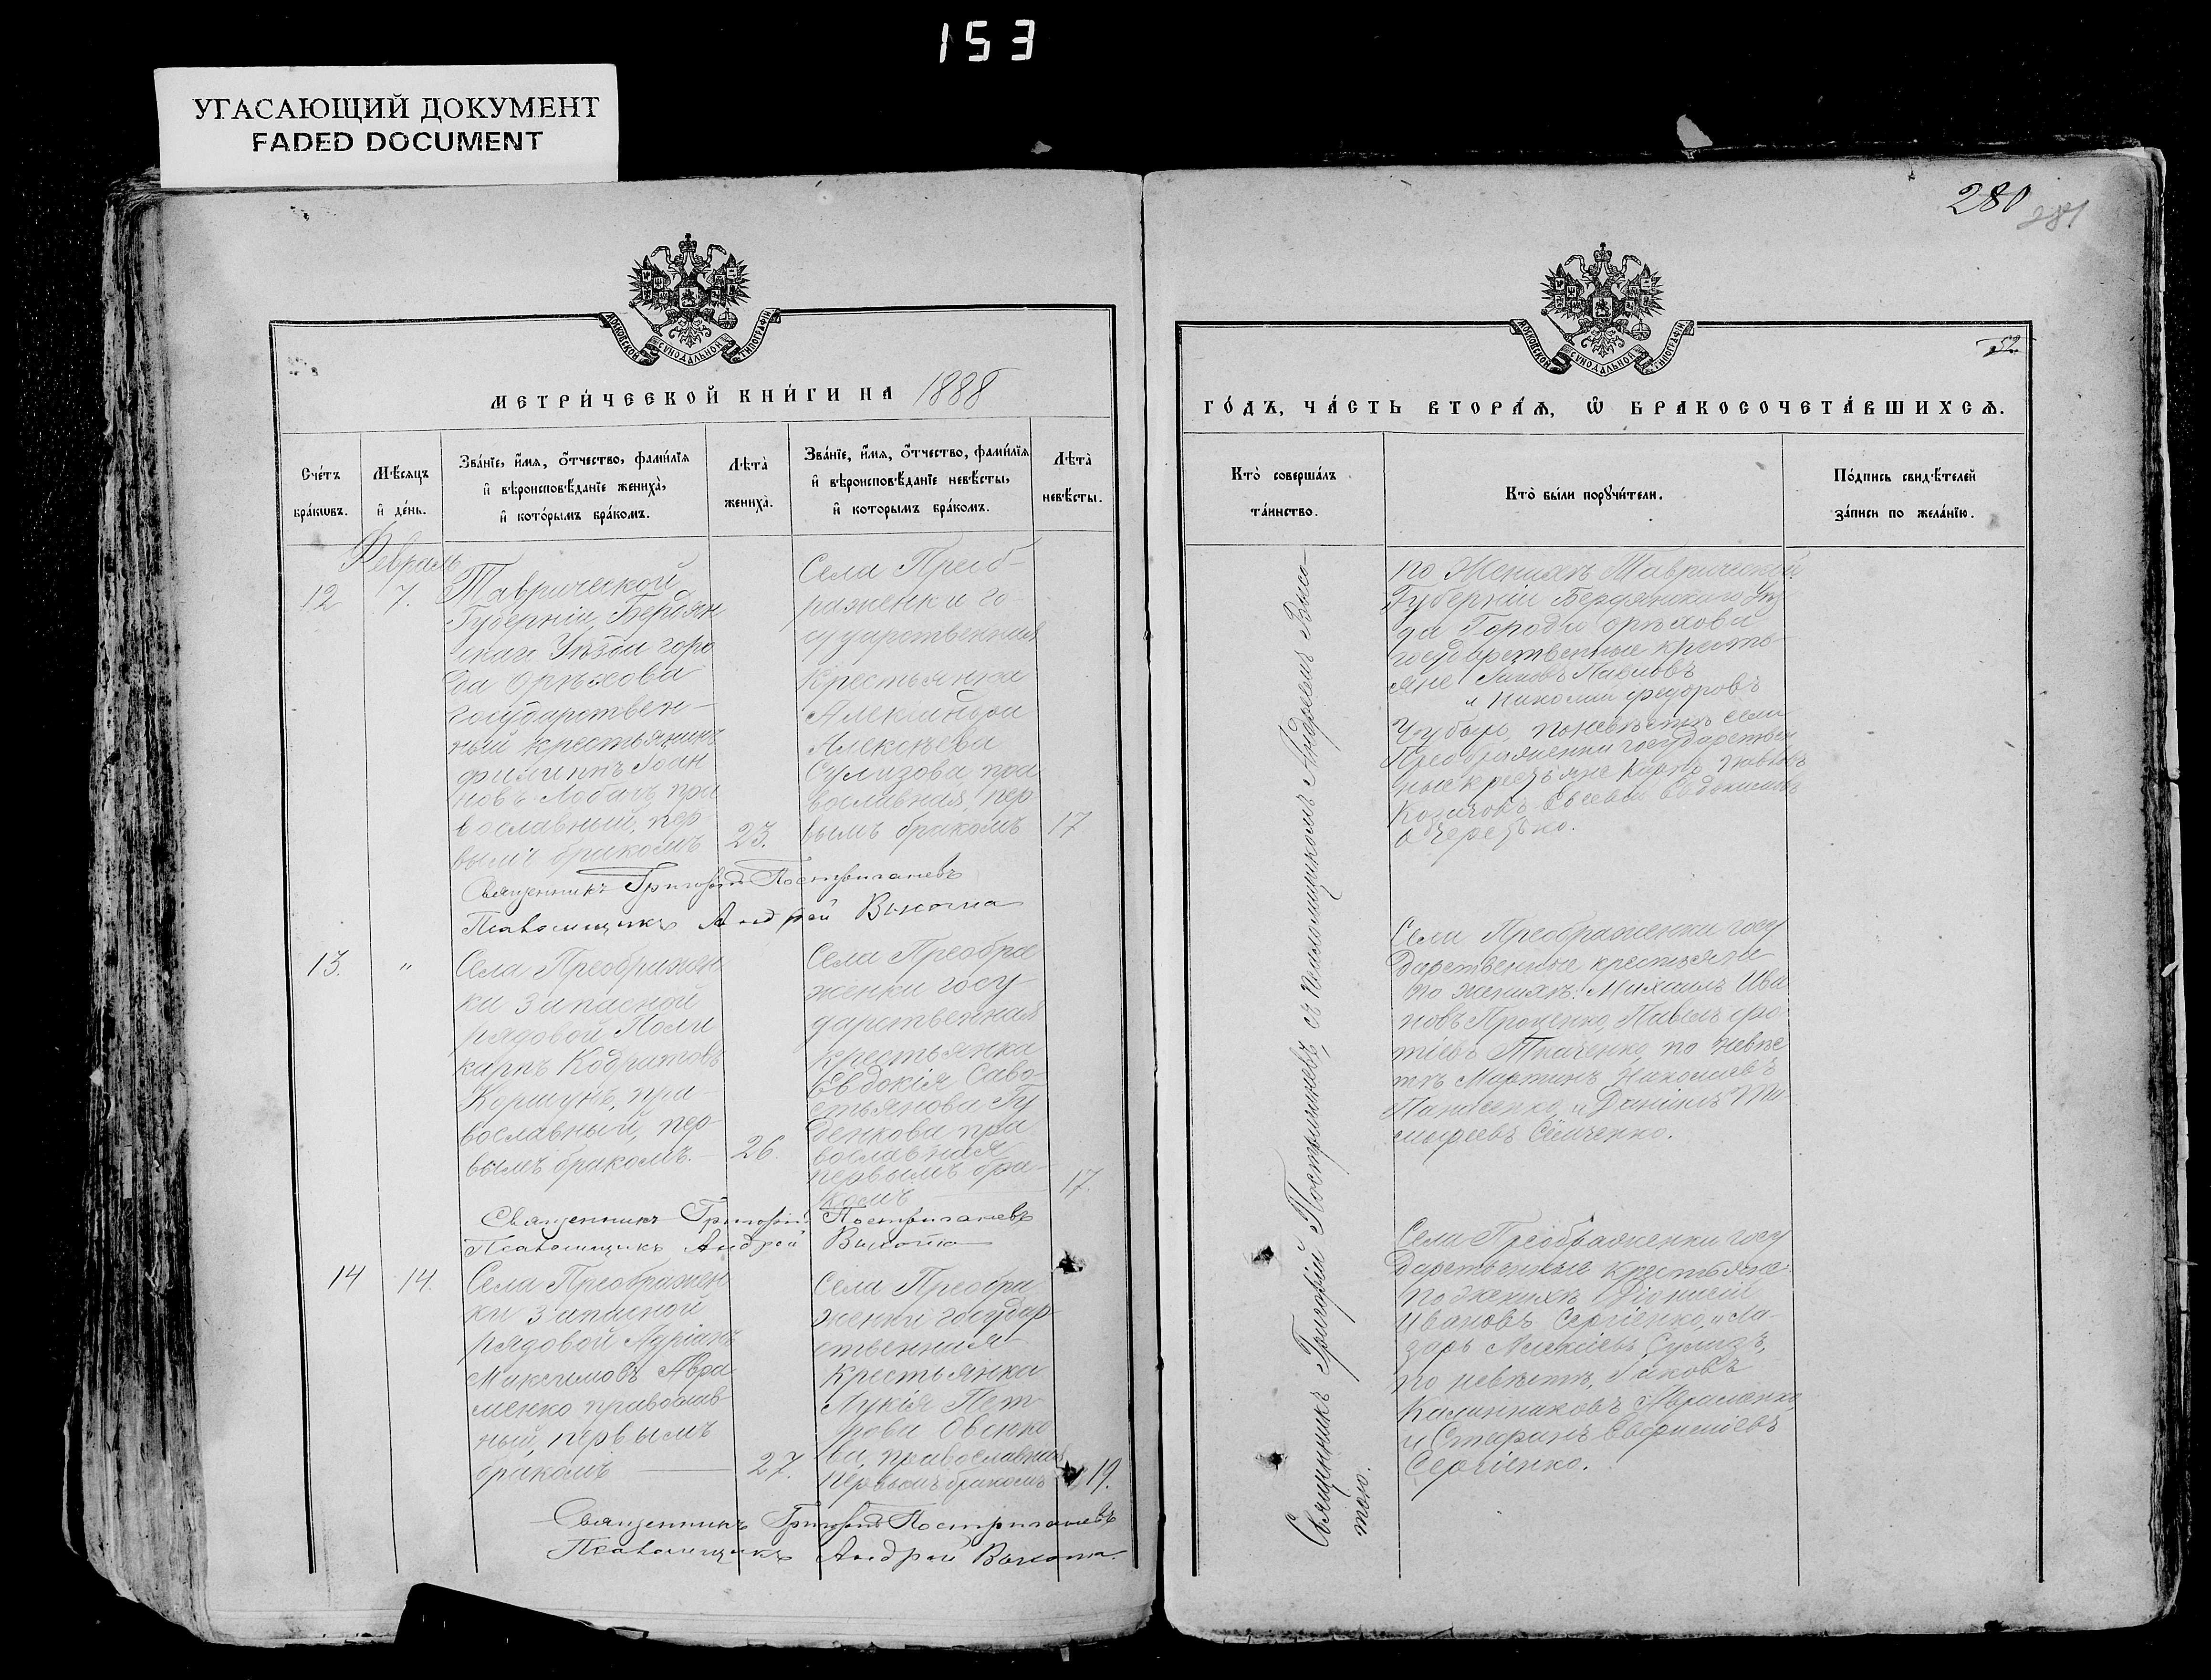 153
УГАСАЮЩИЙ ДОКУМЕНТ
FADED DOCUMENT
280
281
МОСКОВСКОЙ СУНОДАЛЬНОЙ ТИПОГРАФІИ
МЕТРИ́ЧЕСКОЙ КНИ́ГИ НА 1888
Сче́тъ бра́кωвъ.
Мѣ́сяцъ и҆ де́нь.
Зва́нїе, и҆́мя, ѻ҆́тчество, фами́лїя
и҆ вѣроисповѣ́данїе жениха̀,
и҆ кото́рымъ бра́комъ.
Лѣта̀ жениха̀.
Зва́нїе, и҆́мя, ѻ҆́тчество, фами́лїя
и҆ вѣроисповѣ́данїе невѣ́сты,
и҆ которымъ бра́комъ.
Лѣта̀ невѣ́сты.
Февраль
12
7.
Таврической
Губерніи, Бердян
скаго Уѣзда горо
да Орѣхова
государствен-
ный крестьянинъ
Филиппъ Іоан
новъ Лобачъ, пра
вославный, пер
вымъ бракомъ
23.
Села Преоб-
раженки го-
сударственная
крестьянка
Александра
Алексѣева
Сулизова пра
вославная, пер
вымъ бракомъ
17
Священникъ Григорій Постриганевъ
Псаломщикъ Андрей Высота
13.
"
Села Преображен
ки запасной
рядовой Поли
карпъ Кодратовъ
Коршунъ, пра-
вославный, пер-
вымъ бракомъ.
26.
Села Преобра
женки госу-
дарственная
крестьянка
Евдокія Саво-
стьянова Гу
денкова пра
вославная
первымъ бра-
комъ
17.
Священникъ Григорій Постриганевъ
Псаломщикъ Андрей Высота
14
14.
Села Преображен
ки запасной
рядовой Адріанъ
Максимовъ Авра
менко православ-
ный, первымъ
бракомъ
27.
Села Преобра
женки государ
ственная
крестьянка
Лукія Пет-
рова Овенко
ва, православная
первымъ бракомъ
19.
Священникъ Григорій Постриганевъ
Псаломщикъ Андрей Высота.
МОСКОВСКОЙ СУНОДАЛЬНОЙ ТИПОГРАФІИ
52
ГО́ДЪ, ЧА́СТЬ ВТОРА́Ѧ, Ѡ҆ БРАКОСОЧЕТА́ВШИХСѦ.
Кто̀ соверша́лъ
та́инство.
Кто̀ бы́ли порꙋчи́тели.
По́дпись свидѣ́телей
за́писи по жела́нїю.
Священникъ Григорій Постриганевъ съ псаломщикомъ Андреемъ Высо-
тою.
по Женихѣ Таврической
Губерніи Бердянского Уѣз
да Города Орѣхова
государственные кресть-
яне Іаковъ Павловъ
и Николай Федоровъ
Чубарь, по невѣстѣ села
Преображенки государствен
ные крестьяне Карпъ
Козачокъ Евсевій Евдокимовъ
Очередько.
Села Преображенки госу
дарственные крестьяне
по женихѣ: Михаилъ Ива
новъ Проценко, Павелъ Фо-
тіевъ Ткаченко, по невѣс
тѣ Мартинъ Николаевъ
Панасенко и Даніилъ Ти
мофеевъ Семченко.
Села Преображенки госу
дарственные крестьяне:
по женихѣ Діонисій
Ивановъ Сергіенко, и Ла-
зарь Алексіевъ Сулизъ,
по невѣстѣ, Іаковъ
Калинниковъ Авраменко,
и Стефанъ Евфиміевъ
Сергіенко.